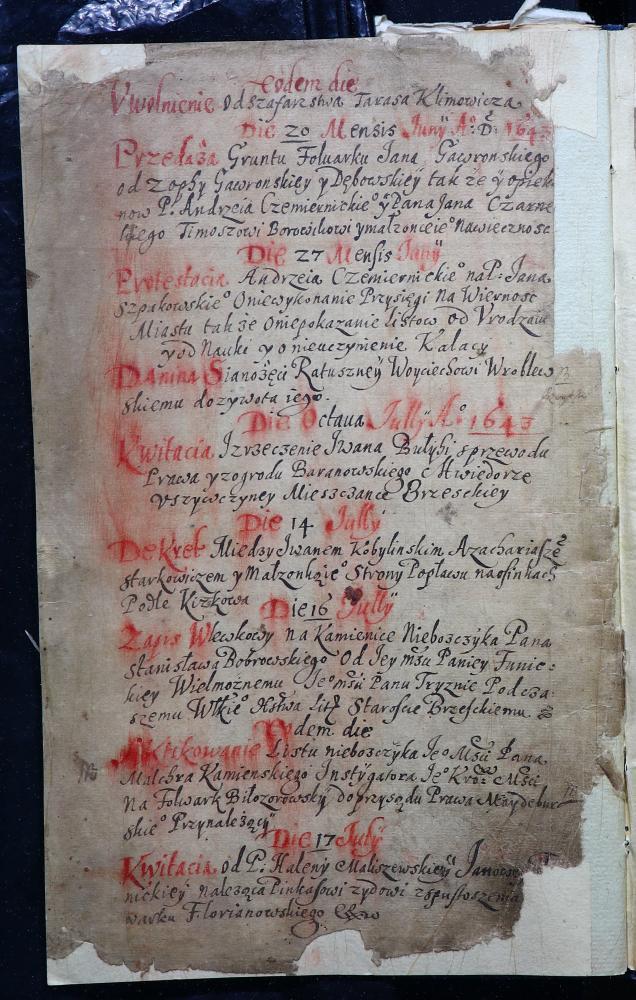 Eodem die
Vwolnienie od szafarstwa Tarasa Klimowicza
Die 20 Mensis Juny A: D: 1643
Przedaża Gruntu Folwarku Jana Gawronskiego
od Zophy Gawronskiey y Dębowskiey tak że y opiek
now P. Andrzeia Czemiernickieº y Pana Jana Czarne
ckiego Timoszowi Borowikowi y małżonce ieº Na wiecznosc
Die 27 Mensis Juny
Protestacia Andrzeia Czemiernickieº na P: Jana
Szpakowskieº O niewykonanie Przysięgi Na Wiernosc
Miastu tak że o niepokazanie listow od Vrodzaiu
y od Nauki y o nieuczynienie Kalacy
Danina Sianożęci Ratuszney Woyciechowi Wroblew
skiemu do zywota iego.
Die Octaua July Aº 1643
Kwitacia Izrzeczenie Iwana Butybi sprzewodu
Prawa y zogrodu Baranowskiego
Mieszczance Brzeskiey
Die 14 July
Dekret Miedzy Iwanem Kobylinskim A zachariasze
starkowiczem y Małzonką ieº Strony Popławu na osinkach
Podle Kizkowa
Die 16 July
Zapis Wlewkowy na Kamienice Nieboszczyka Pana
Stanisława Bobrowskiego Od Jey mści Paniey Tunie:
kiey Wielmożnemu Jeº mści Panu Tryznie Podcza:
szemu Wº Xstwa Lit Staroscie Brzesckiemu
Eodem die
Aktikowanie Listu nieboszczyka Jeº Mści Pana
Malchra Kamienskiego Instygatora Jeº Kroº Mści
Na Folwark Biłozorowsky Do przysądu Prawa Maydebur
skieº Przynależący
Die 17 July
Kwitacia od P: Haleny Maliszewskiey Janowey
nickiey należąca Pinkasowi zydowi zspustoszenia
warku Florianowskiego